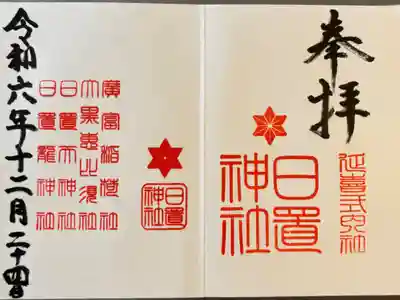 奉拝
延喜式内社
日置神社
日置神社
廣富稲荷社
大黒恵比須社
日置天神社
日置龍神社
令和六年十二月二十四日